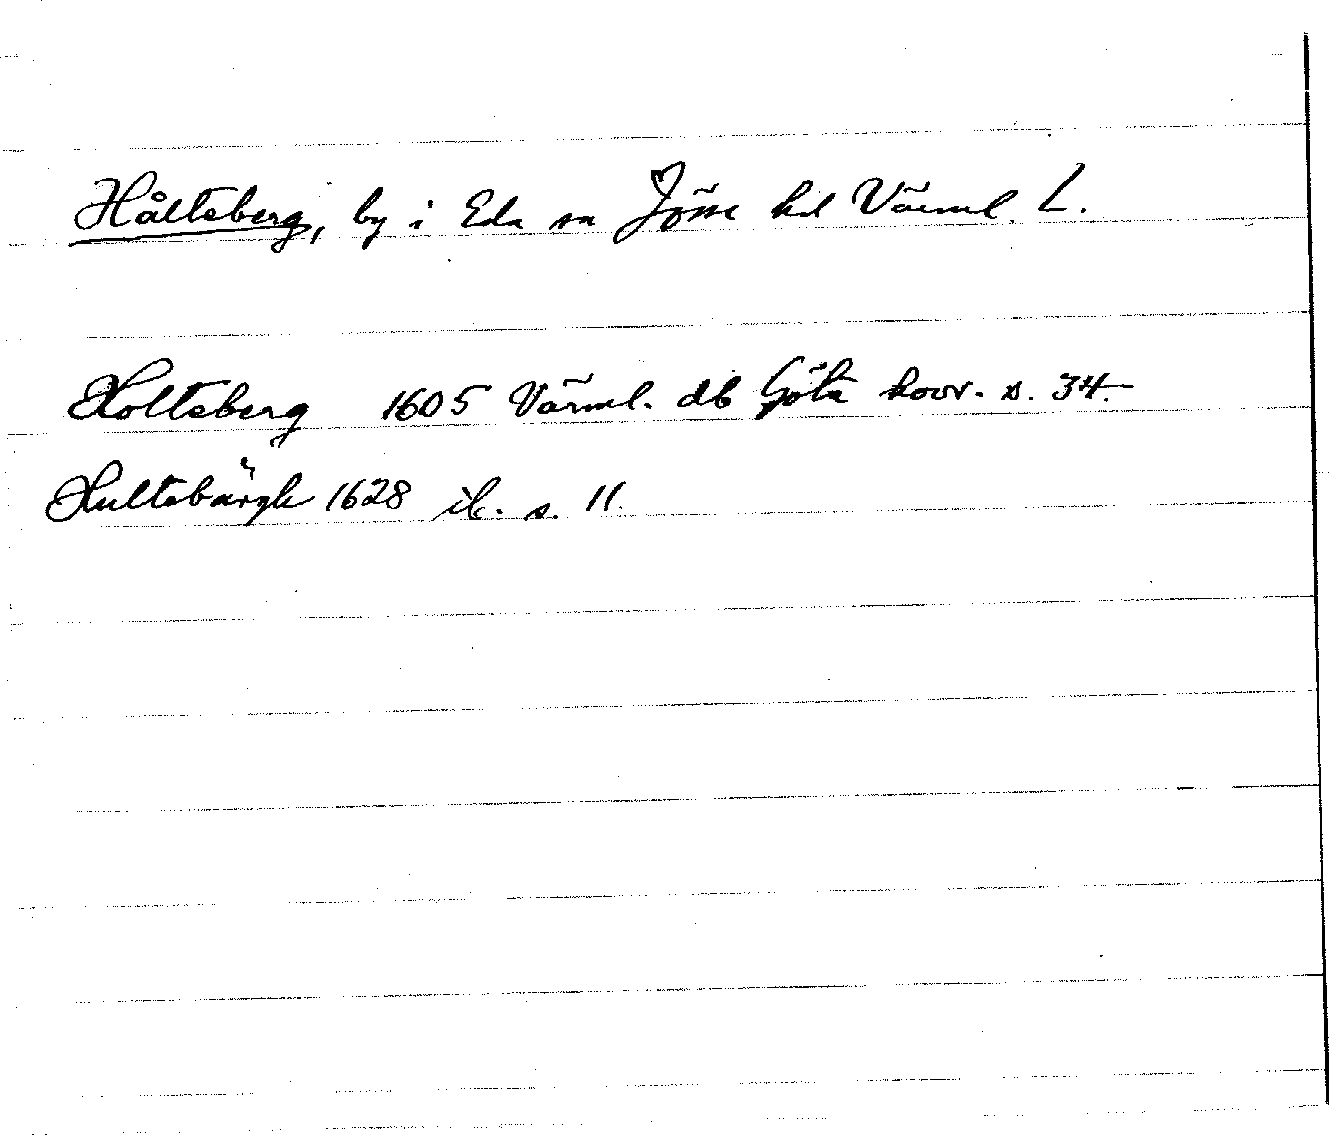 Hålteberg, by i Eda sn Jösse hd Värml. L.
Holteberg 1605 Värml. db Göta hovr. s. 34.
Hultebärgh 1628 ib. s. 11.